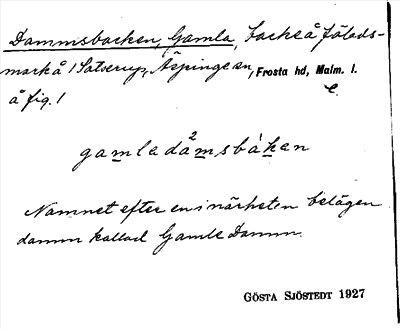 Dammsbacken, Gamla, backe å fälads-
mark å 1 Satserup, Äspinge sn, Frosta hd, Malm. l.
å fig. 1 e.
gamledåmsbàken
2
Namnet efter en i närheten belägen
damm kallad Gamle Damm.
GÖSTA SJÖSTEDT 1927